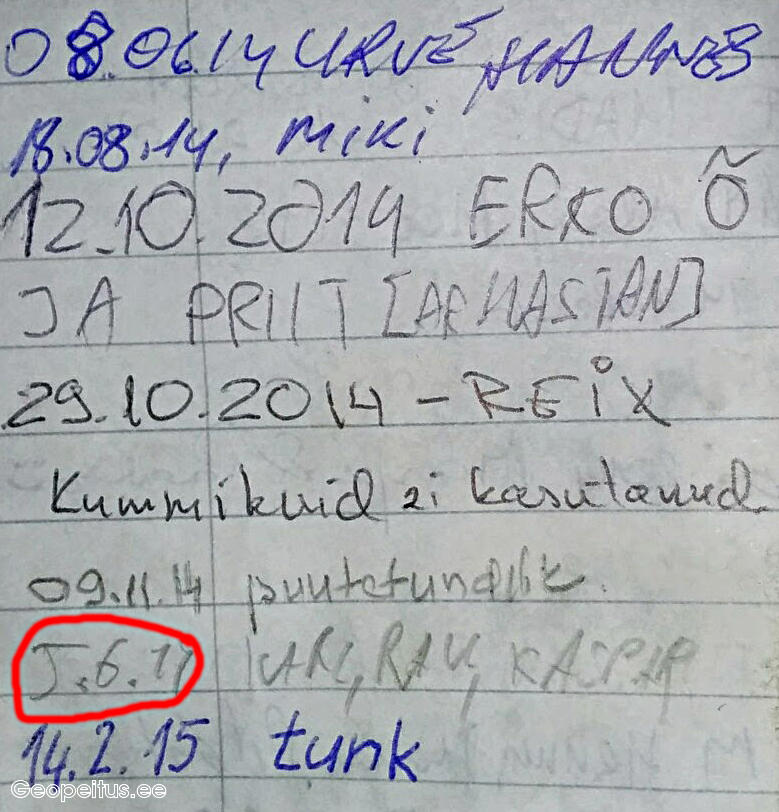 08.06.14 URVE, HANNES
18.08.14, MIKI
12.10.2014 ERKO Õ
JA PRIIT [ARMASTAN]
29.10.2014 - REiX
Kummikuid ei kasutanud
09.11.14 puutetundlik.
J.6.11 KARL, RAU, KASPAR
14.2.15 tunk
Geopeitus.ee